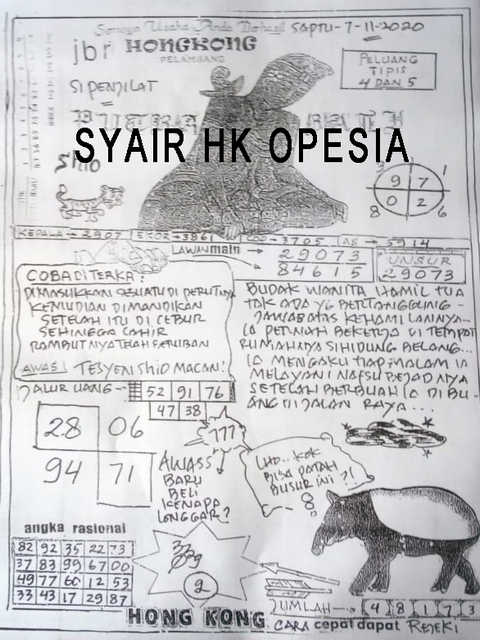 Semoga Usaha Anda Berhasil SAPTU-7-11-2020
jbr HONGKONG
PELAMBANG
SI PENJILAT
PELUANG
TIPIS
4 DAN 5
SYAIR HK OPESIA
SHIO
9 7
0 2
8 6
KEPALA → 2907 EKOR → 3861 → 3705 AS → 5914
LAWAN main → 29073
84615
UNSUR
29073
COBA DITERKA?
DIMASUKKAN SESUATU DI PERUTNYA
KEMUDIAN DIMANDIKAN
SETELAH ITU DI CEBUR
SEHINGGA CAHIR
RAMBUTNYA TELAH SERIBAN
AWAS! TESYEN SHIO MACAN!
BUDAK WANITA HAMIL TUA
TAK ADA YG BERTANGGUNG-
JAWAB ATAS KEHAMILANNYA...
IA PERNAH BEKERJA DI TEMPAT
RUMAHNYA SI HIDUNG BELANG...
IA MENGAKU TIAP MALAM IA
MELAYANI NAFSU BEJADNYA
SETELAH BERBUAH IA DI BU-
ANG DI JALAN RAYA...
JALUR UANG → 52 91 76
47 38
28 06
94 71
777
AWASS
BARU
BELI
KENAPA
LONGGAR?
LHO.. KOK
BISA PATAH
BUSUR INI ?!
angka rasional
82 92 35 22 73
37 83 99 67 00
49 77 60 12 53
33 43 17 29 87
2
JUMLAH → 4 8 1 7 3
HONG KONG CARA cepat dapat REJEKI